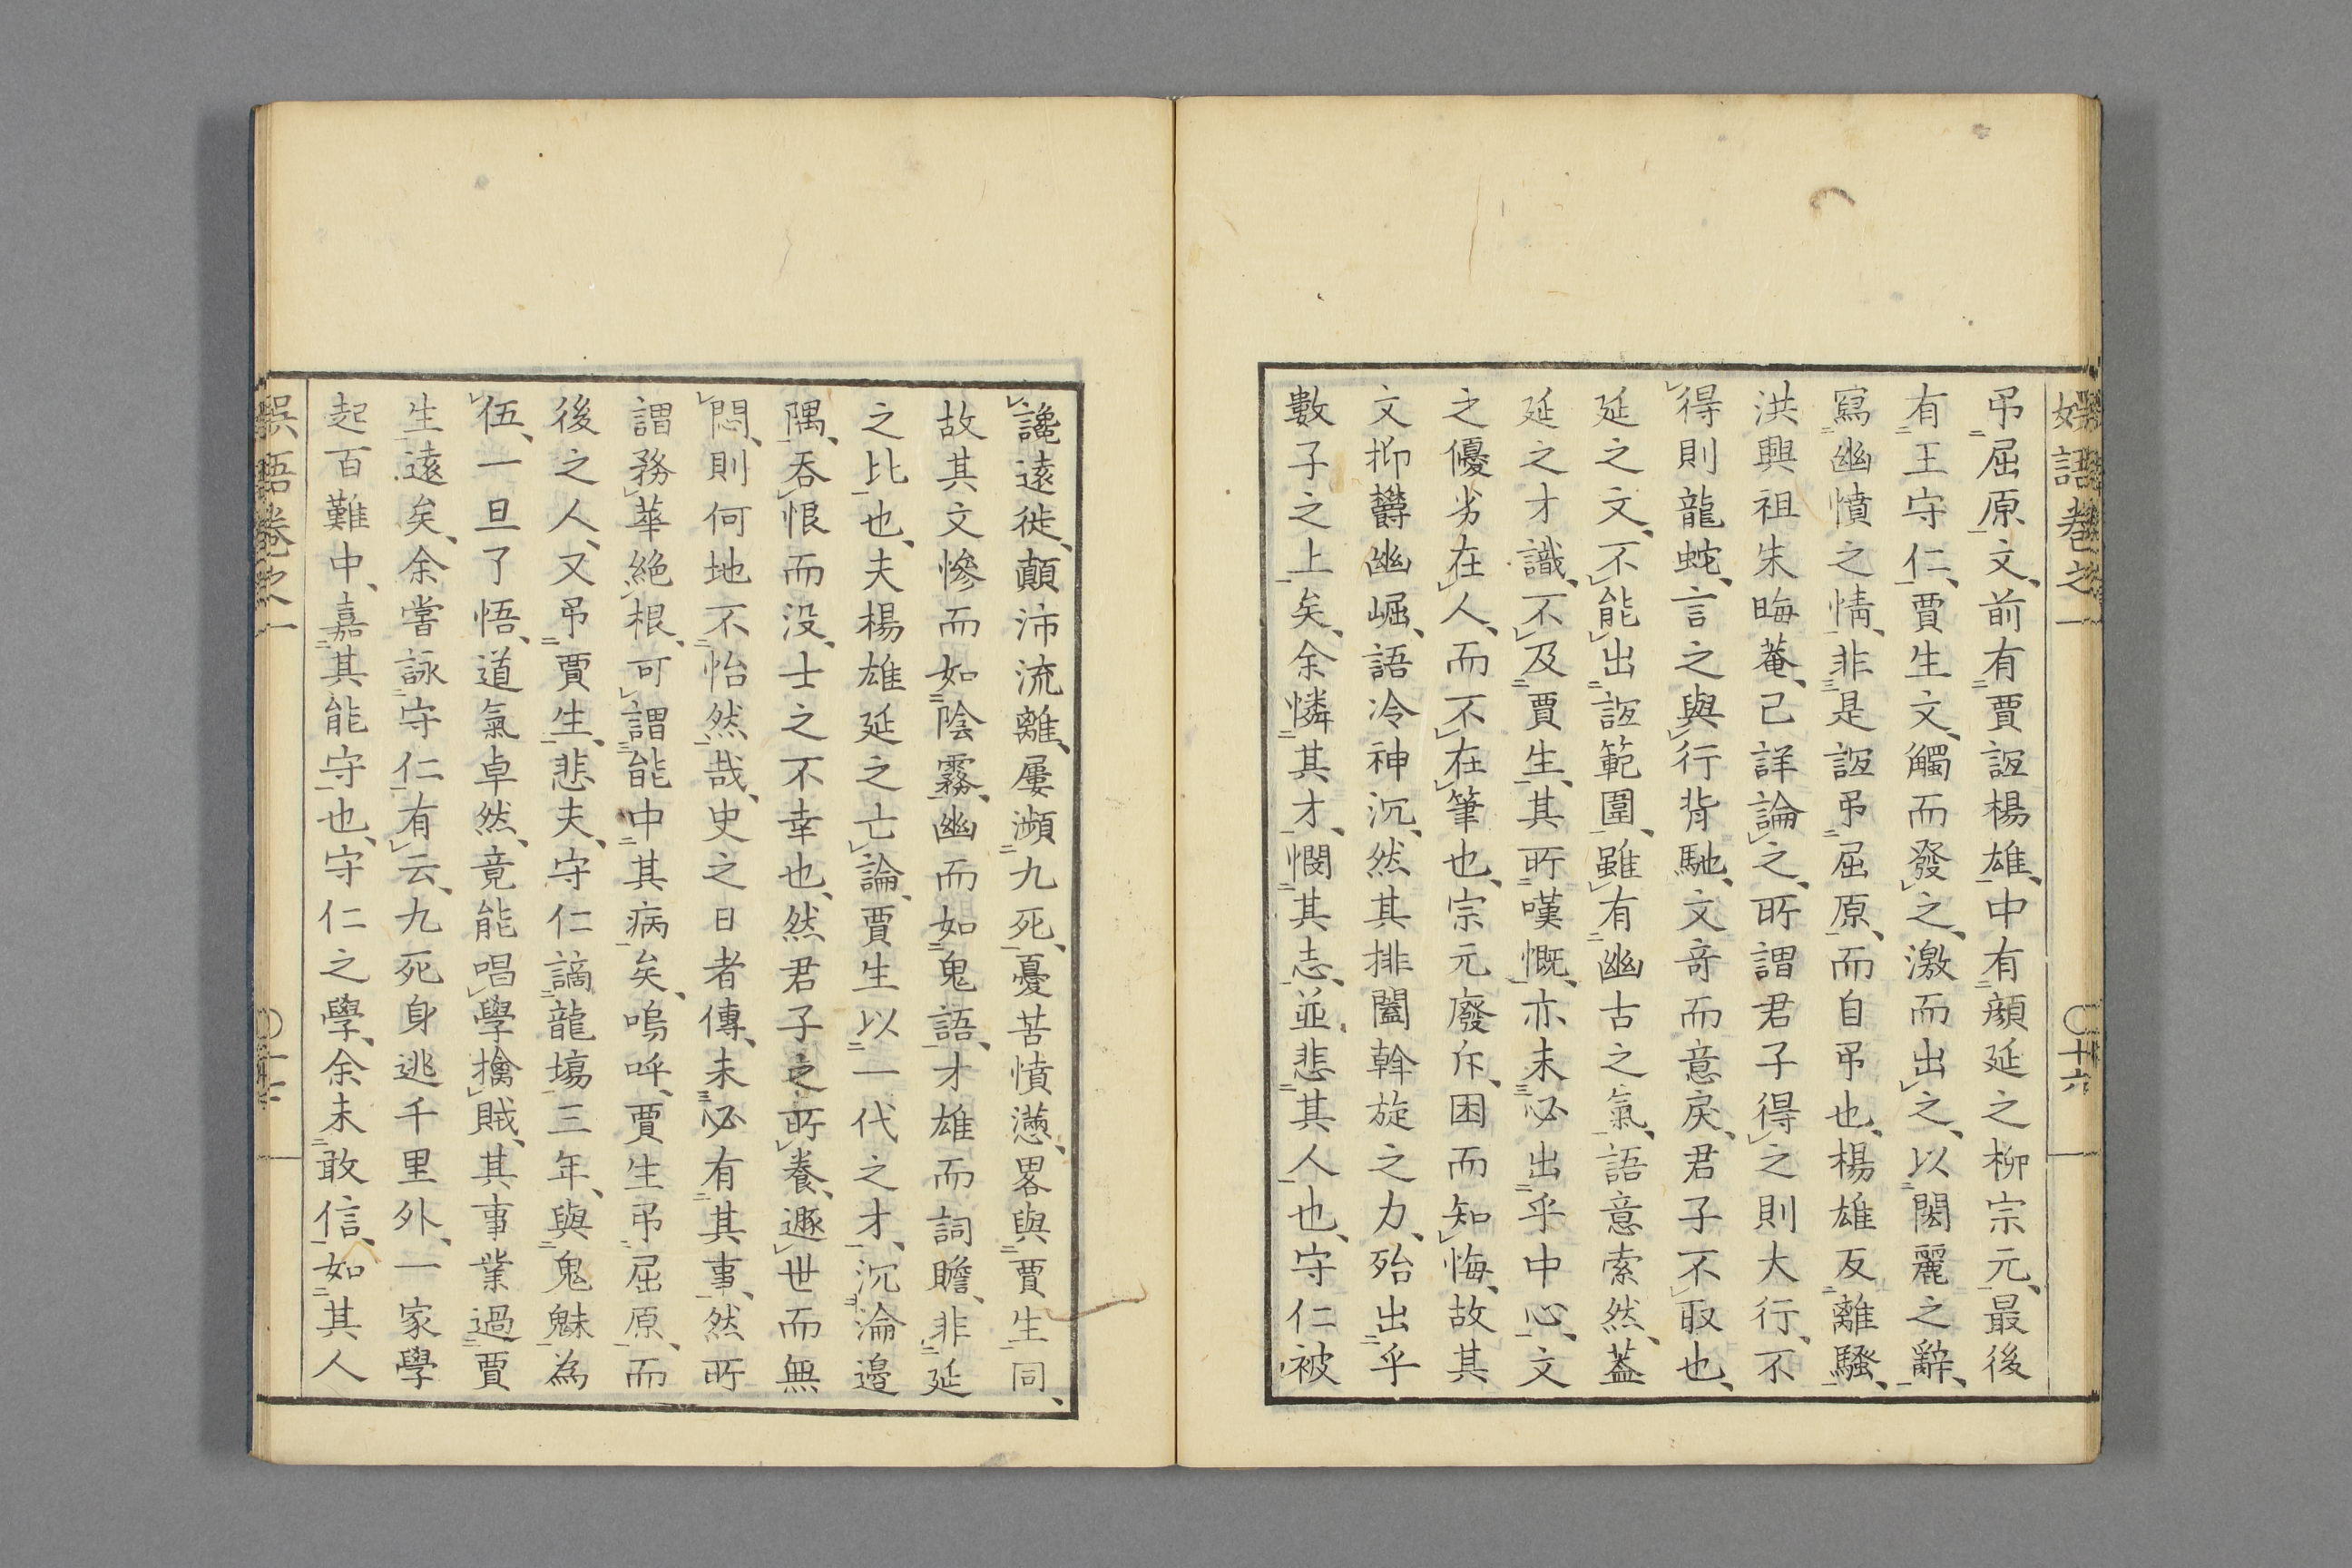 吊屈原文、前有賈誼楊雄、中有顔延之柳宗元、最後
有王守仁、賈生文、觸而發之、激而出之、以閎麗之辭、
寫幽憤之情、非是誼吊屈原、而自吊也、楊雄反離騷、
洪興祖朱晦菴、已詳論之、所謂君子得之則大行、不
得則龍蛇、言之與行背馳、文竒而意戾、君子不取也、
延之文、不能出誼範圍、雖有幽古之氣、語意索然、蓋
延之才識、不及賈生、其所嘆慨、亦未必出乎中心、文
之優劣在人、而不在筆也、宗元廢斥、困而知悔、故其
文抑欝幽崛、語冷神沉、然其排闔斡旋之力、殆出乎
數子之上矣、余憐其才、憫其志、並悲其人也、守仁被
讒遠徙、顛沛流離、屢瀕九死、憂苦憤懣、畧與賈生同、
故其文慘而如陰霧、幽而如鬼語、才雄而詞贍、非延
之比也、夫楊雄延之亡論、賈生以一代之才、沉淪邉
隅、吞恨而没、士之不幸也、然君子之所養、遯世而無
悶、則何地不怡然哉、史之日者傳、未必有其事、然所
謂務華絶根、可謂能中其病矣、嗚呼、賈生吊屈原、而
後之人、又吊賈生、悲夫、守仁謫龍場三年、與鬼魅為
伍、一旦了悟、道氣卓然、竟能唱學擒賊、其事業過賈
生遠矣、余嘗詠守仁有云、九死身逃千里外、一家學
起百難中、嘉其能守也、守仁之學、余未敢信、如其人
語卷之一
〇十六
語卷之一